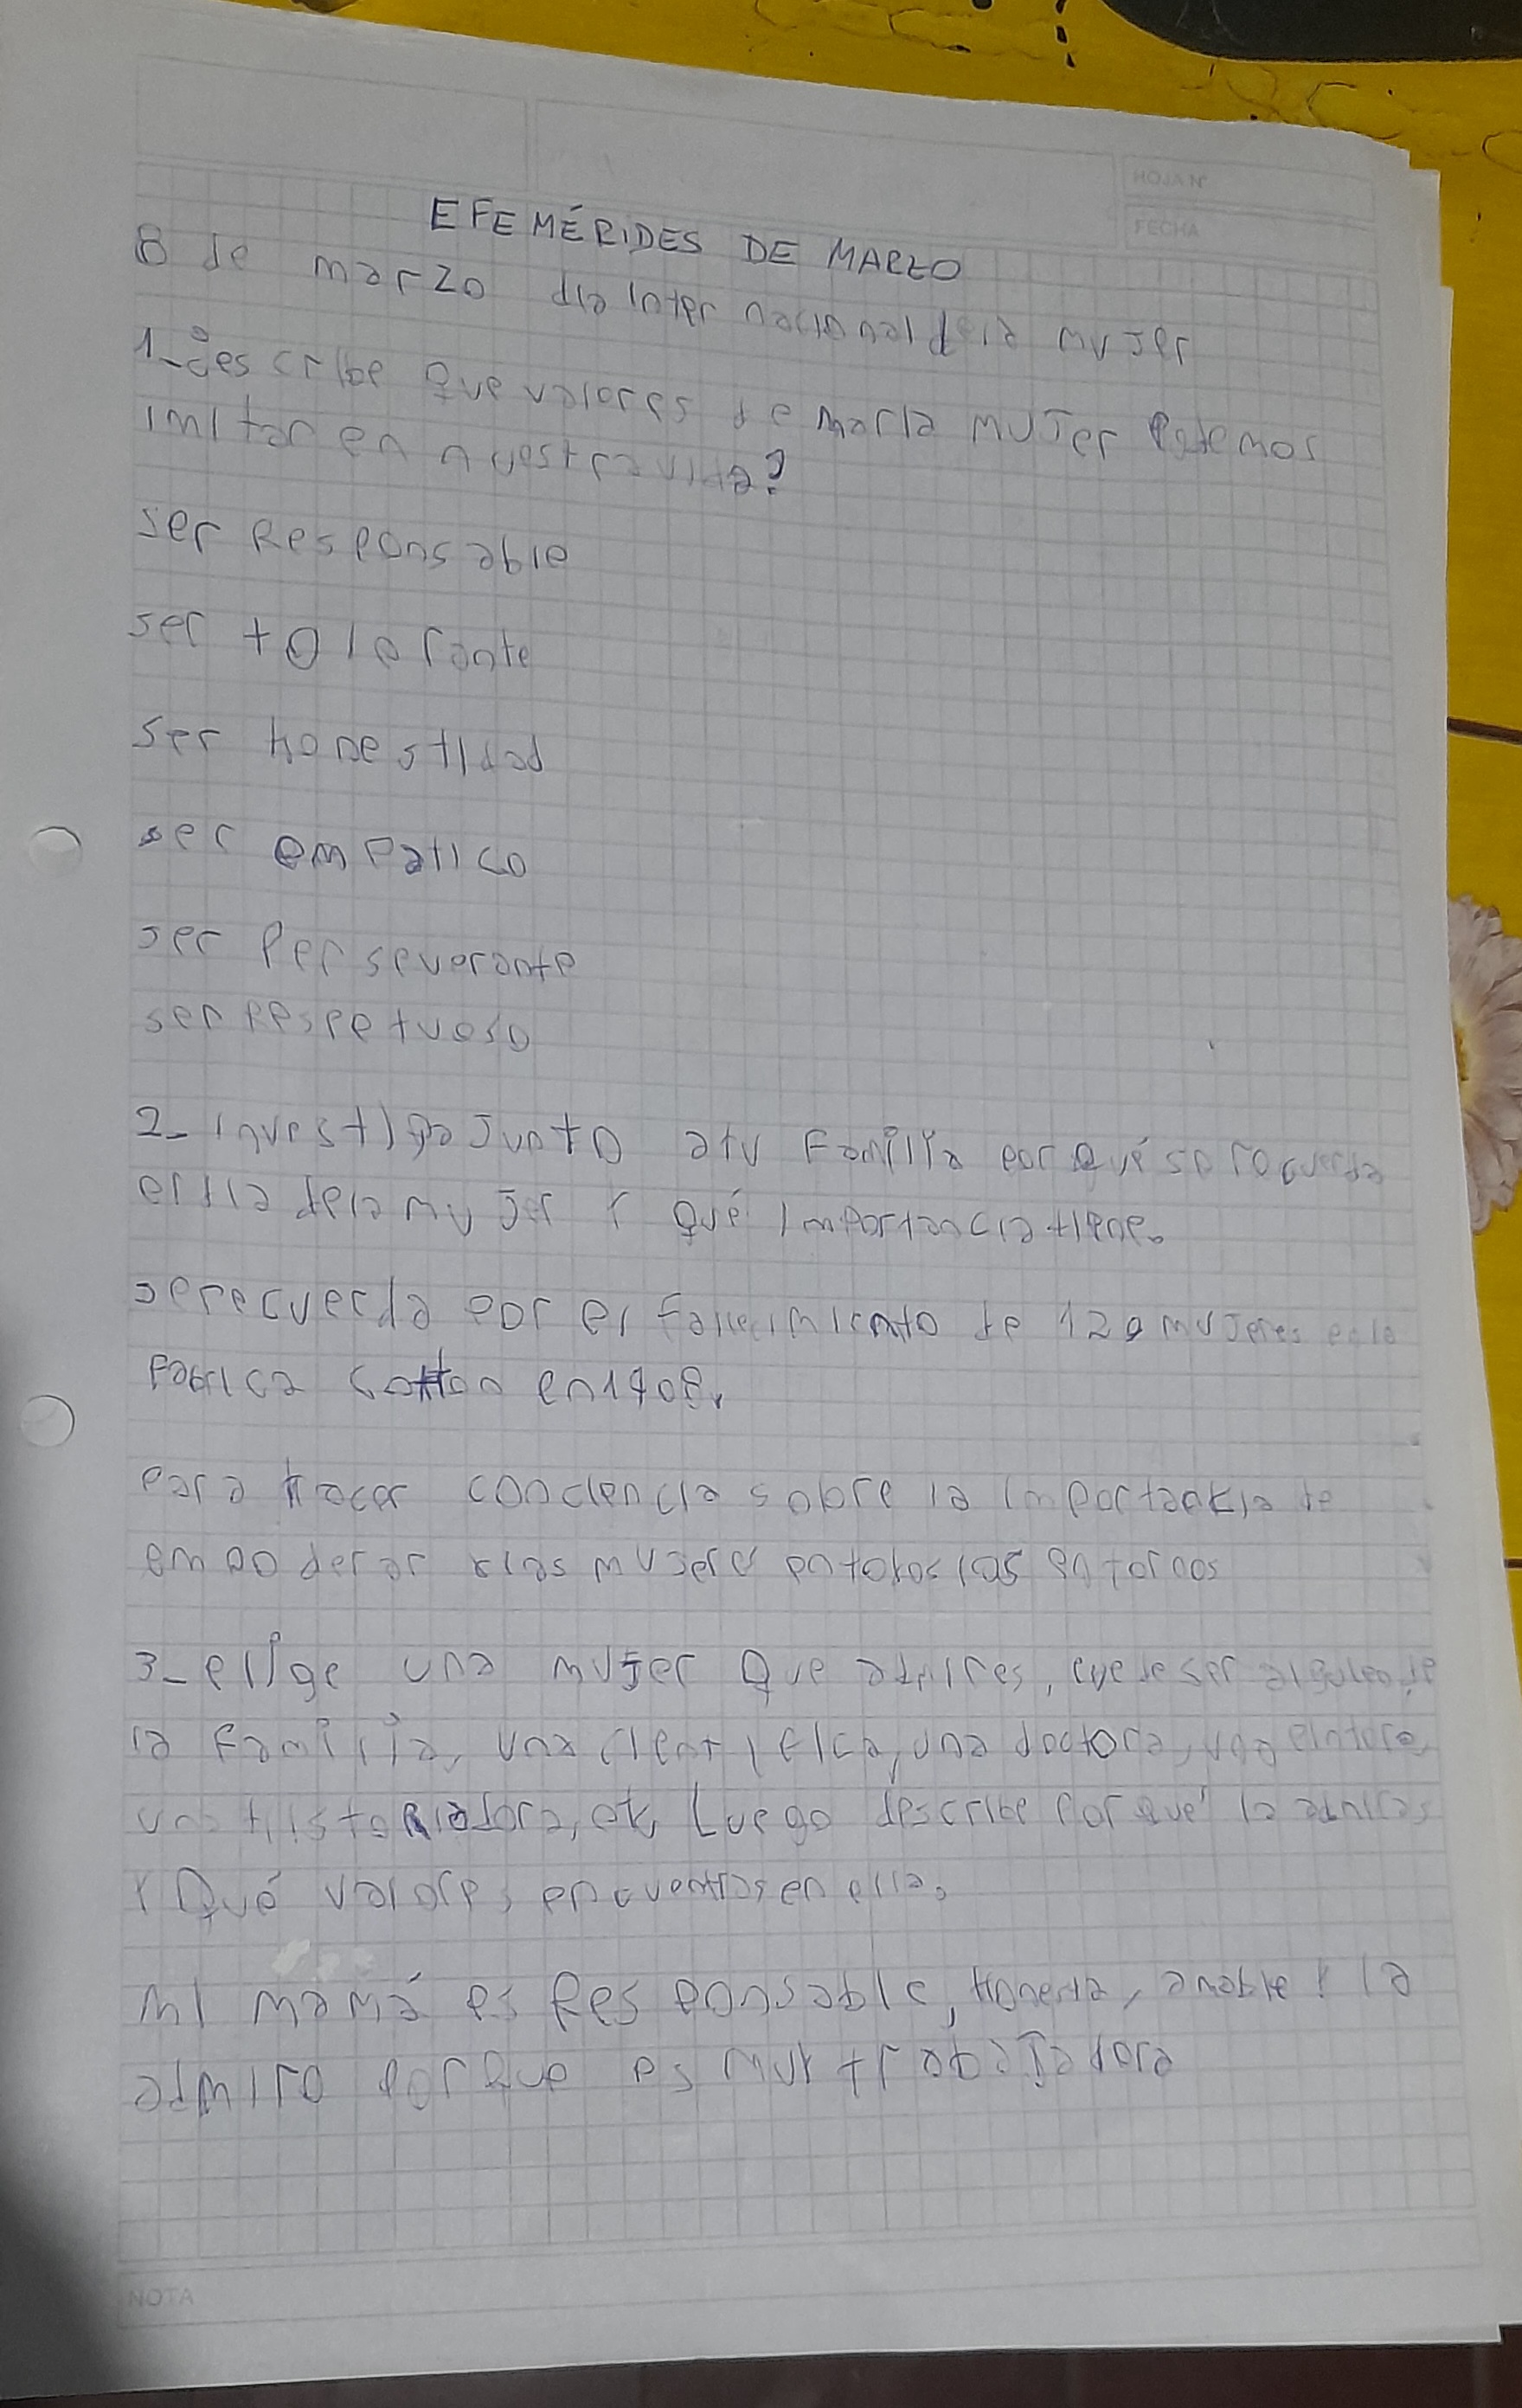 HOJA N°
FECHA
EFEMÉRIDES DE MARZO
8 de marzo dia inter nacional de la mujer
1_ describe que valores de maria mujer Podemos
imitar en nuestra vida?
ser Responsable
ser tolerante
ser honestidad
ser empatico
ser Perseverante
ser Respetuoso
2_ investiga junto a tu Familia por qué se recuerda
el dia de la mujer Y qué importancia tiene.
se recuerda por el fallecimiento de 129 mujeres en la
Fabrica Cotton en 1908.
para hacer conciencia sobre la importancia de
empoderar a las mujeres en todos los entornos
3_ elige una mujer que admires, puede ser alguien de
la Familia, una cientifica, una doctora, una pintora,
una historiadora, etc, Luego describe por qué la admiras
Y Qué valores encuentras en ella.
mi mamá es Responsable, Honesta, amable Y la
admiro porque es muy trabajadora
NOTA